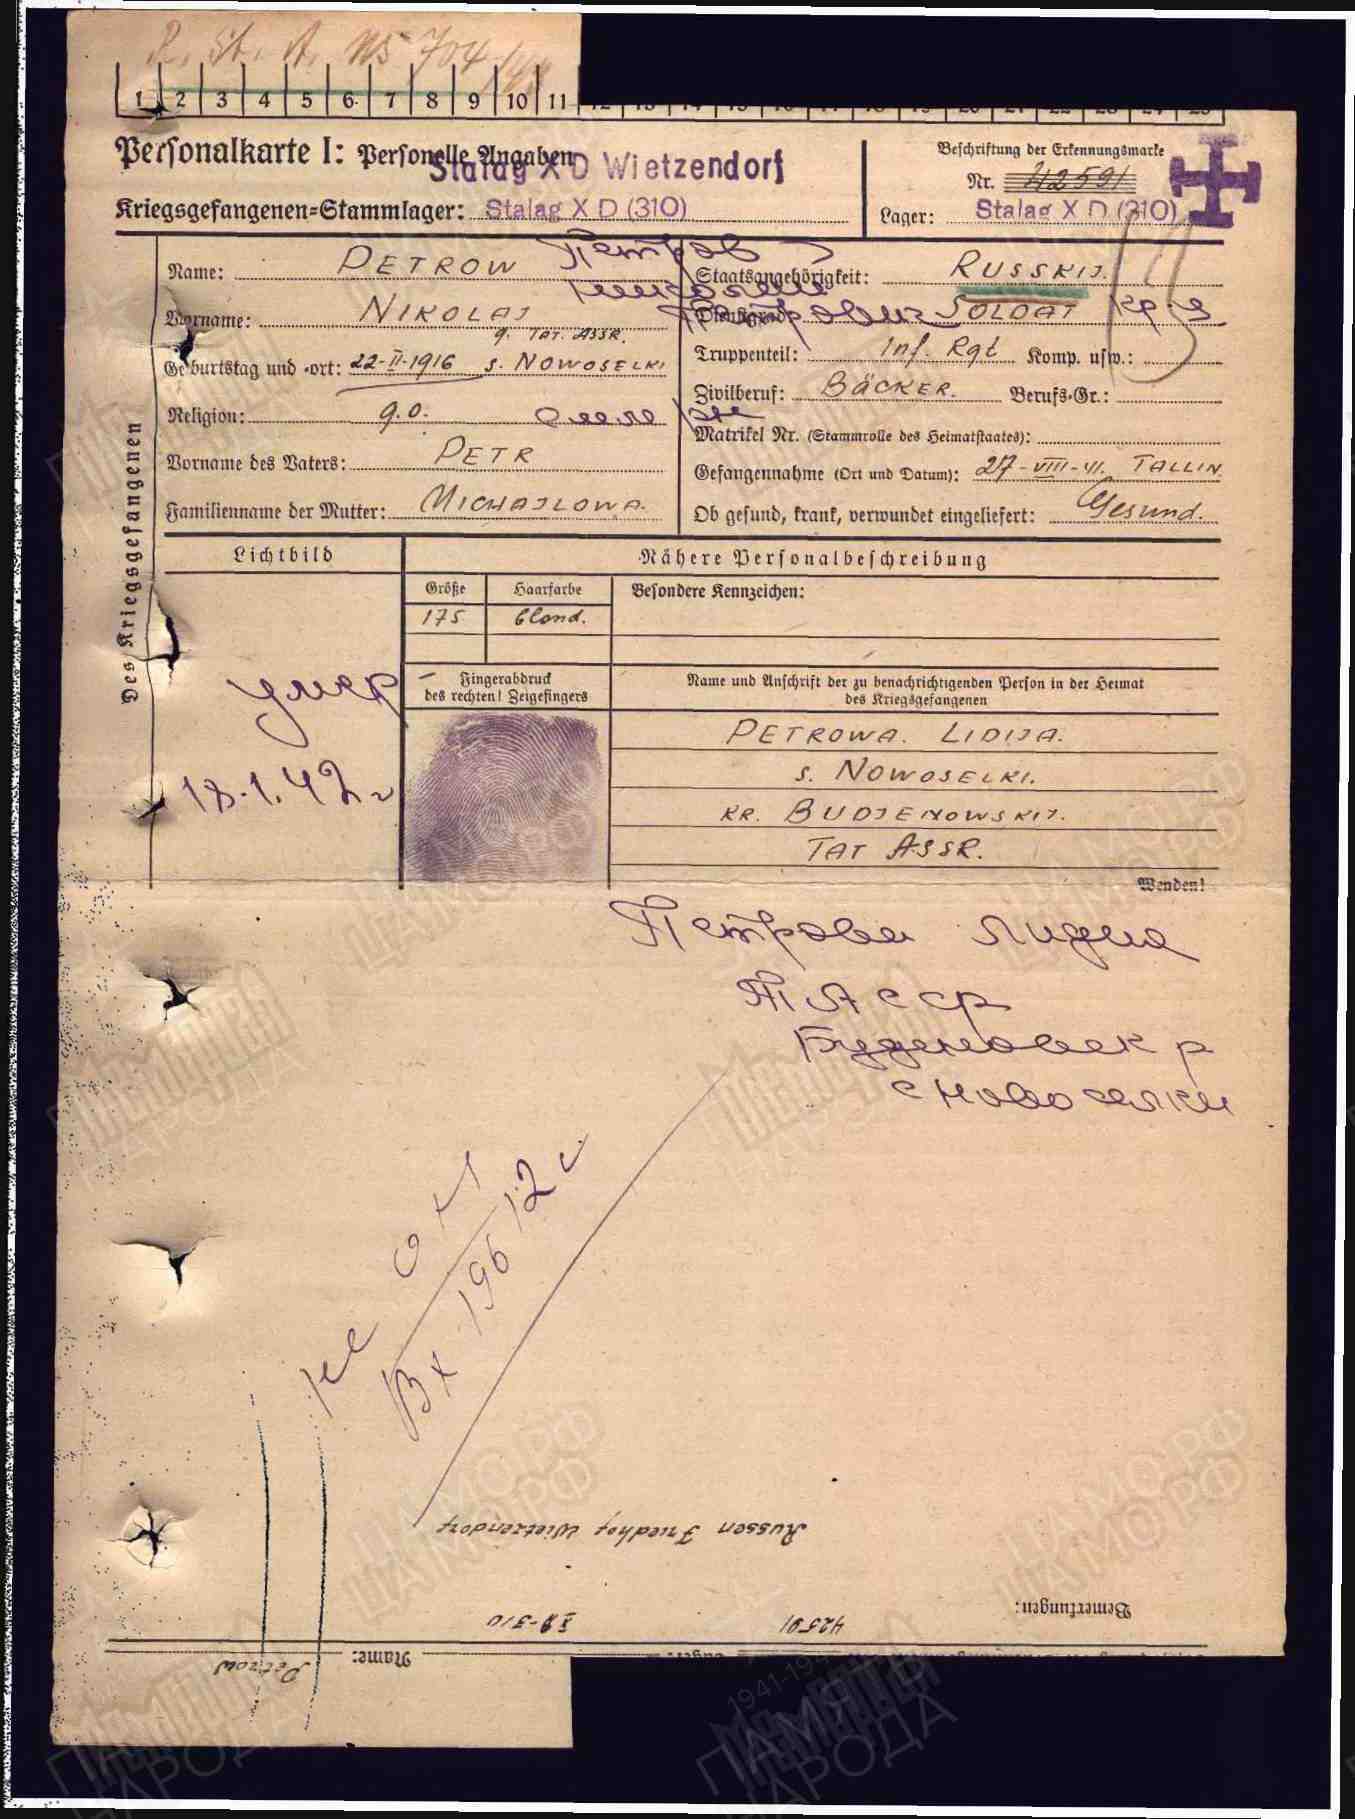 R. St. A. NS 704/42
1 2 3 4 5 6 7 8 9 10 11 12 13 14 15 16 17 18 19 20 21 22 23 24 25
Personalkarte I: Personelle Angaben
Stalag X D Wietzendorf
Kriegsgefangenen=Stammlager: Stalag X D (310)
Beschriftung der Erkennungsmarke
Nr. 42591
Lager: Stalag X D (310)
Des Kriegsgefangenen
Name: PETROW Петров
Николай
Vorname: NIKOLAJ Петрович
g. TAT. ASSR.
Geburtstag und =ort: 22-II-1916 s. NOWOSELKI
Religion: g.o.
Vorname des Vaters: PETR
Familienname der Mutter: MICHAJLOWA.
Staatsangehörigkeit: RUSSKIJ.
Dienstgrad: SOLDAT
Truppenteil: Inf. Rgt Komp. usw.:
Zivilberuf: BÄCKER. Berufs-Gr.:
Matrikel Nr. (Stammrolle des Heimatstaates):
Gefangennahme (Ort und Datum): 27-VIII-41. TALLIN.
Ob gesund, krank, verwundet eingeliefert: Gesund.
Lichtbild
Nähere Personalbeschreibung
Größe Haarfarbe Besondere Kennzeichen:
175 blond.
умер
18.1.42 г
Fingerabdruck
des rechten! Zeigefingers
Name und Anschrift der zu benachrichtigenden Person in der Heimat
des Kriegsgefangenen
PETROWA. LIDIJA.
s. NOWOSELKI.
KR. BUDJENOWSKIJ.
TAT ASSR.
Wenden!
Петрова Лидия
ТАССР
Буденовск р
с Новоселки
Вх 196
Russen Friedhof Wietzendorf
Bemerkungen:
42591 XD-310
Name: Petrow
ПАМЯТЬ
НАРОДА
ЦАМО РФ